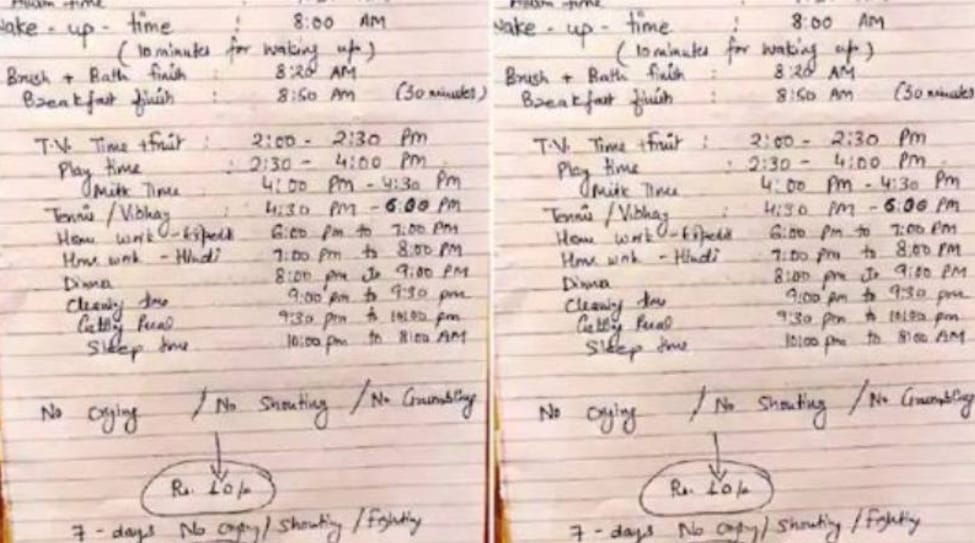 Alarm time :
Wake-up-time : 8:00 AM
(10 minutes for waking up)
Brush + Bath finish : 8:20 AM
Breakfast finish : 8:50 AM (30 minutes)
T.V. Time + fruit : 2:00 - 2:30 Pm
Play time : 2:30 - 4:00 Pm
Milk Time 4:00 Pm - 4:30 Pm
Tennis / Vibhav : 4:30 PM - 6:00 PM
Home work - 6:00 Pm to 7:00 PM
Home work - Hindi 7:00 pm to 8:00 PM
Dinner 8:00 pm to 9:00 PM
Cleaning time 9:00 pm to 9:30 pm
9:30 pm to 10:00 pm
Sleep time 10:00 pm to 8:00 AM
No Crying / No Shouting / No Grumbling
Rs. 10/-
7-days No crying / Shouting / Fighting
Alarm time :
Wake-up-time : 8:00 AM
(10 minutes for waking up)
Brush + Bath finish : 8:20 AM
Breakfast finish : 8:50 AM (30 minutes
T.V. Time + fruit : 2:00 - 2:30 Pm
Play time : 2:30 - 4:00 Pm
Milk Time 4:00 Pm - 4:30 Pm
Tennis / Vibhav : 4:30 PM - 6:00 PM
Home work - 6:00 Pm to 7:00 PM
Home work - Hindi 7:00 pm to 8:00 PM
Dinner 8:00 pm to 9:00 PM
Cleaning time 9:00 pm to 9:30 pm
9:30 pm to 10:00 pm
Sleep time 10:00 pm to 8:00 AM
No Crying / No Shouting / No Grumbling
Rs. 10/-
7-days No crying / Shouting / Fighting